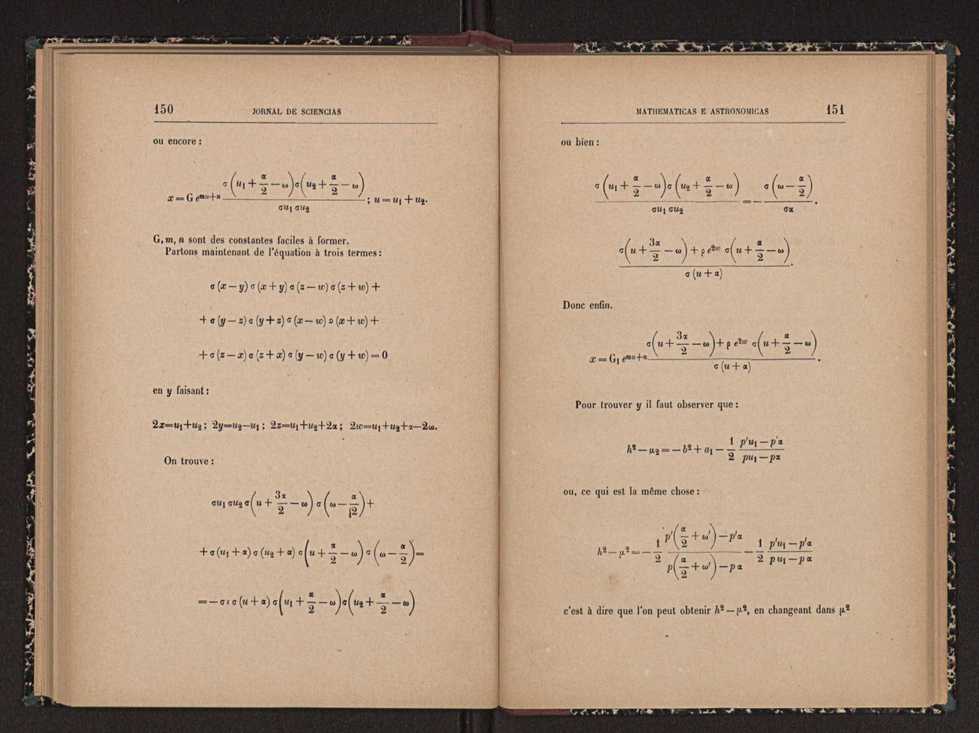 150 JORNAL DE SCIENCIAS
ou encore :
x = G e^{mu+n} σ(u₁ + α/2 — ω) σ(u₂ + α/2 — ω) / σu₁ σu₂ ; u = u₁ + u₂.
G, m, n sont des constantes faciles à former.
Partons maintenant de l'équation à trois termes :
σ (x — y) σ (x + y) σ (z — w) σ (z + w) +
+ σ (y — z) σ (y + z) σ (x — w) σ (x + w) +
+ σ (z — x) σ (z + x) σ (y — w) σ (y + w) = 0
en y faisant :
2x=u₁+u₂ ; 2y=u₂—u₁ ; 2z=u₁+u₂+2α ; 2w=u₁+u₂+α—2ω.
On trouve :
σu₁ σu₂ σ(u + 3α/2 — ω) σ(ω — α/2) +
+ σ (u₁ + α) σ (u₂ + α) σ(u + α/2 — ω) σ(ω — α/2) =
= — σα σ (u + α) σ(u₁ + α/2 — ω) σ(u₂ + α/2 — ω)
MATHEMATICAS E ASTRONOMICAS 151
ou bien :
σ(u₁ + α/2 — ω) σ(u₂ + α/2 — ω) / σu₁ σu₂ = — σ(ω — α/2) / σα .
σ(u + 3α/2 — ω) + ρ e^{2w} σ(u + α/2 — ω) / σ (u + α) .
Donc enfin.
x = G₁ e^{mu+n} σ(u + 3α/2 — ω) + ρ e^{2w} σ(u + α/2 — ω) / σ (u + α) .
Pour trouver y il faut observer que :
h² — μ₂ = — b² + a₁ — 1/2 p'u₁ — p'α / pu₁ — pα
ou, ce qui est la même chose :
h² — μ² = — 1/2 p'(α/2 + ω') — p'α / p(α/2 + ω') — pα — 1/2 p'u₁ — p'α / pu₁ — pα
c'est à dire que l'on peut obtenir h² — μ², en changeant dans μ²